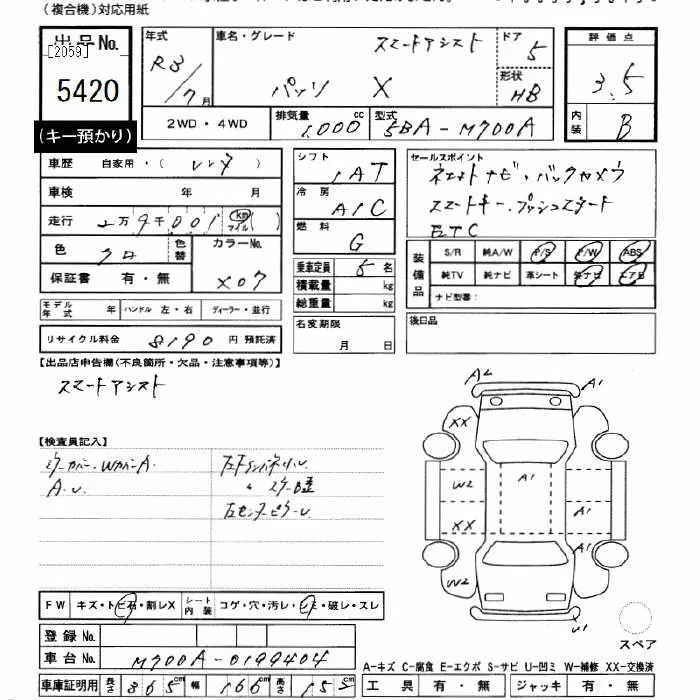 (複合機)対応用紙
出品No.
[2059]
5420
(キー預かり)
年式
R3/7月
車名・グレード
スマートアシスト
パッソ X
ドア
5
形状
HB
2WD・4WD
排気量
1,000cc
型式
5BA-M700A
評価点
3.5
内装
B
車歴 自家用・(レンタ)
車検 年 月
走行 2万9千001 km マイル
色
クロ
色替
カラーNo.
X07
保証書 有・無
シフト
IAT
冷房
A/C
燃料
G
乗車定員 5名
積載量 kg
総重量 kg
セールスポイント
ネットナビ・バックカメラ
スマートキー・プッシュスタート
ETC
装備品
S/R 純A/W P/S P/W ABS
純TV 純ナビ 革シート 外ナビ エアB
ナビ型番:
モデル年式 年 ハンドル 左・右 ディーラー・並行
リサイクル料金 8190円 預託済
名変期限
月 日
後日品
【出品店申告欄(不良箇所・欠品・注意事項等)】
スマートアシスト
【検査員記入】
ミラーカバー、WカバーA
A.U
〃
A2
A1
XX
W2
A1
A1
XX
A1
W2
U1
スペア
FW キズ・トビ石・割レX
シート内装 コゲ・穴・汚レ・シミ・破レ・スレ
登録No.
車台No. M700A-0199404
車庫証明用 長さ 365cm 幅 166cm 高さ 152cm
A-キズ C-腐食 E-エクボ S-サビ U-凹ミ W-補修 XX-交換済
工具 有・無 ジャッキ 有・無